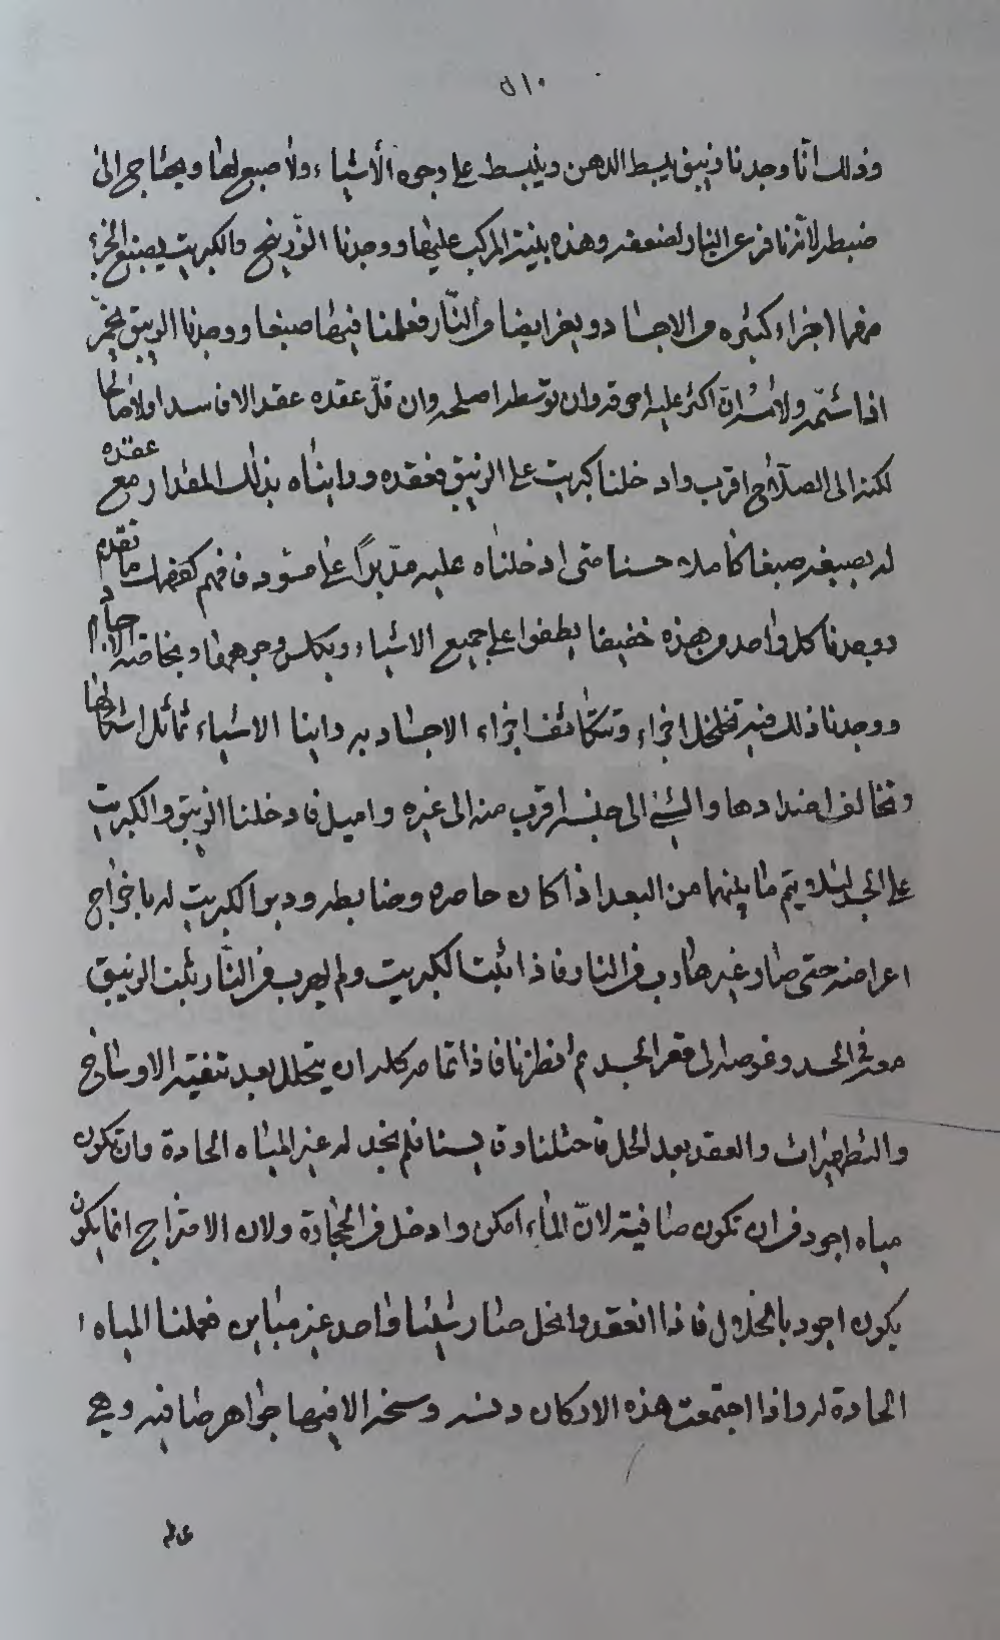 ٥١٠
وذلك انا وجدنا زيبق يبسط الدهن وينبسط على وجه الأشياء ولا صبغ لها ويحتاج الى
ضبطه لانه نافر عن النار لضعفه وهذه بنية المركب عليها ووجدنا الزرنيخ والكبريت يصبغ الجزء
منهما اجزاء كثيره من الاجساد ويفر ايضا من النّار فعلمنا فيهما صبغا ووجدنا الزيبق
اذا شمّه ولانه ان اكثر عليه احرقه وان توسط اصلحه وان قلّ عقده عقد الافاسد اولا صالحا
لكنه الى الصلاح اقرب وادخلنا كبريت على الزيبق فعقده ورايناه بذلك المقدار مع عقده
له يصبغه صبغا كاملا حسنا متى ادخلناه عليه مدبرًا على فافهم ما تقدم
ووجدنا كل واحد من هذه خفيفا يطفوا على جميع الاشياء ويكلس وجوهها وبخاصته الاجسام
ووجدنا ذلك فيه تخلخل اجزاء وتتكاثف اجزاء الاجساد به وراينا الاشياء تماثل اشكالها
وتخالف اضدادها والشيء الى جنسه اقرب منه الى غيره واميل فادخلنا الزيبق والكبريت
على الجسد لئلا يتم ما بينهما من البعد اذا كان حاصره وضابطه ودبرنا الكبريت له باخراج
اعراضه حتى صار غير هارب من النار فاذا ثبت الكبريت ولم يهرب من النّار ثبت الزيبق
معه في الجسد وغوصه الى قعر الجسد ثم نظرنا فاذا تمامه كله ان يتحلل بعد تنقية الاوساخ
والتطهيرات والعقد بعد الحل فامتثلنا وقايسنا فلم نجد له غير المياه الحادة وان تكون
مياه اجود من ان تكون صافية لانّ الماء امكن وادخل من الحجارة ولان الامتزاج انما يكون
يكون اجود بالمحلول فاذا انعقد وانحل صار شيئا واحد غير متباين فعملنا المياه
الحادة له واذا اجتمعت هذه الاركان دنسه وسخه الا فيها جواهر صافيه وهي